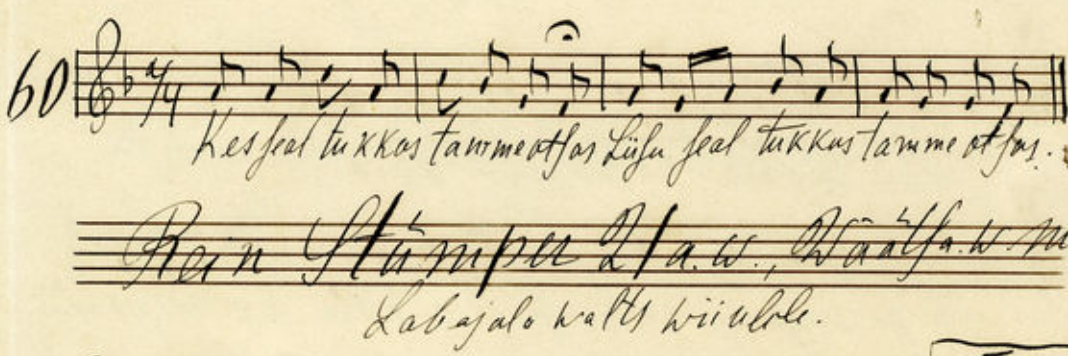 60
Kes seal tukkus tammeotsas Liisu seal tukkus tamme otsas.
Rein Stümper 21 a. w., Wäätsa. w.
Labajalo walts wiiulile.